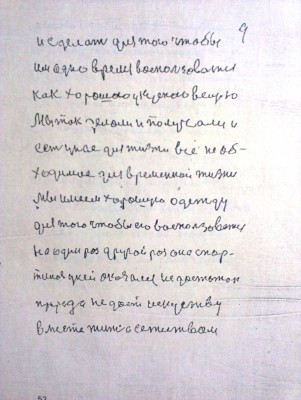 9
и сделать для того чтобы
им одно время воспользоватся
как хорошо искусною вещью
Мы так делали и получали и
всё необ-
ходимое для временной жизни
Мы имеем хорошую одежду
для того чтобы его воспользоватся
на один раз другой раз она
оказался недостаток
природа не даст искуству
вместе жить с естеством
52